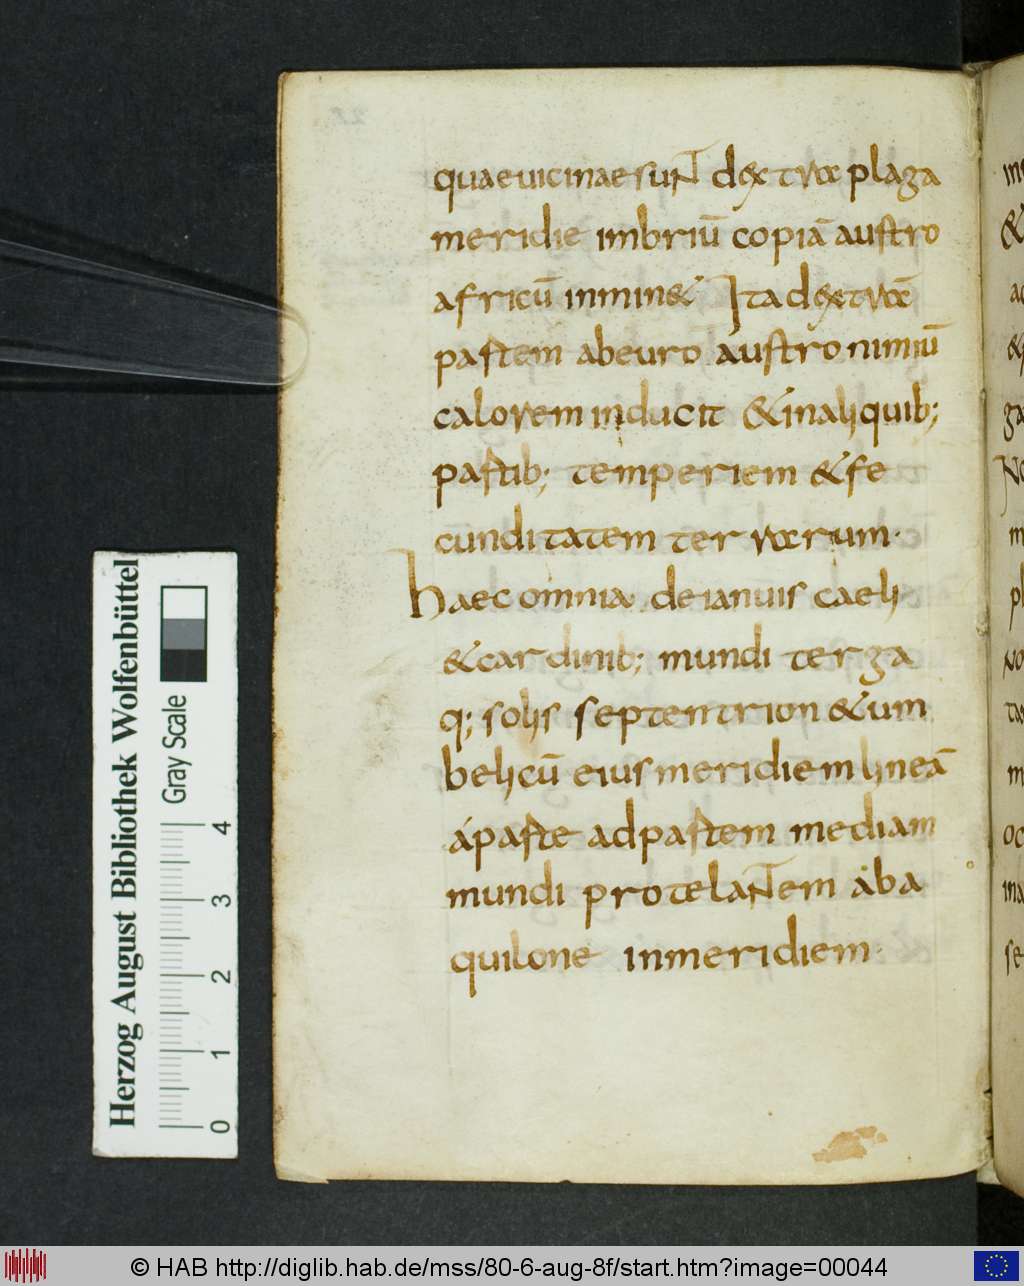 quae uicinae sunt dextrae plaga
meridie imbriū copiā austro
africū inmin& Ita dextrā
partem ab euro austro nimiū
calorem inducit & in aliquib;
partib; temperiem & fe
cunditatem terrarum.
haec omnia de ianuis caeli
& cardinib; mundi terga
q; solis septentrion & um
belicū eius meridiem lineā
áparte ad partem mediam
mundi protelantem ab a
quilone in meridiem.
Herzog August Bibliothek Wolfenbüttel
Gray Scale
0 1 2 3 4
© HAB http://diglib.hab.de/mss/80-6-aug-8f/start.htm?image=00044